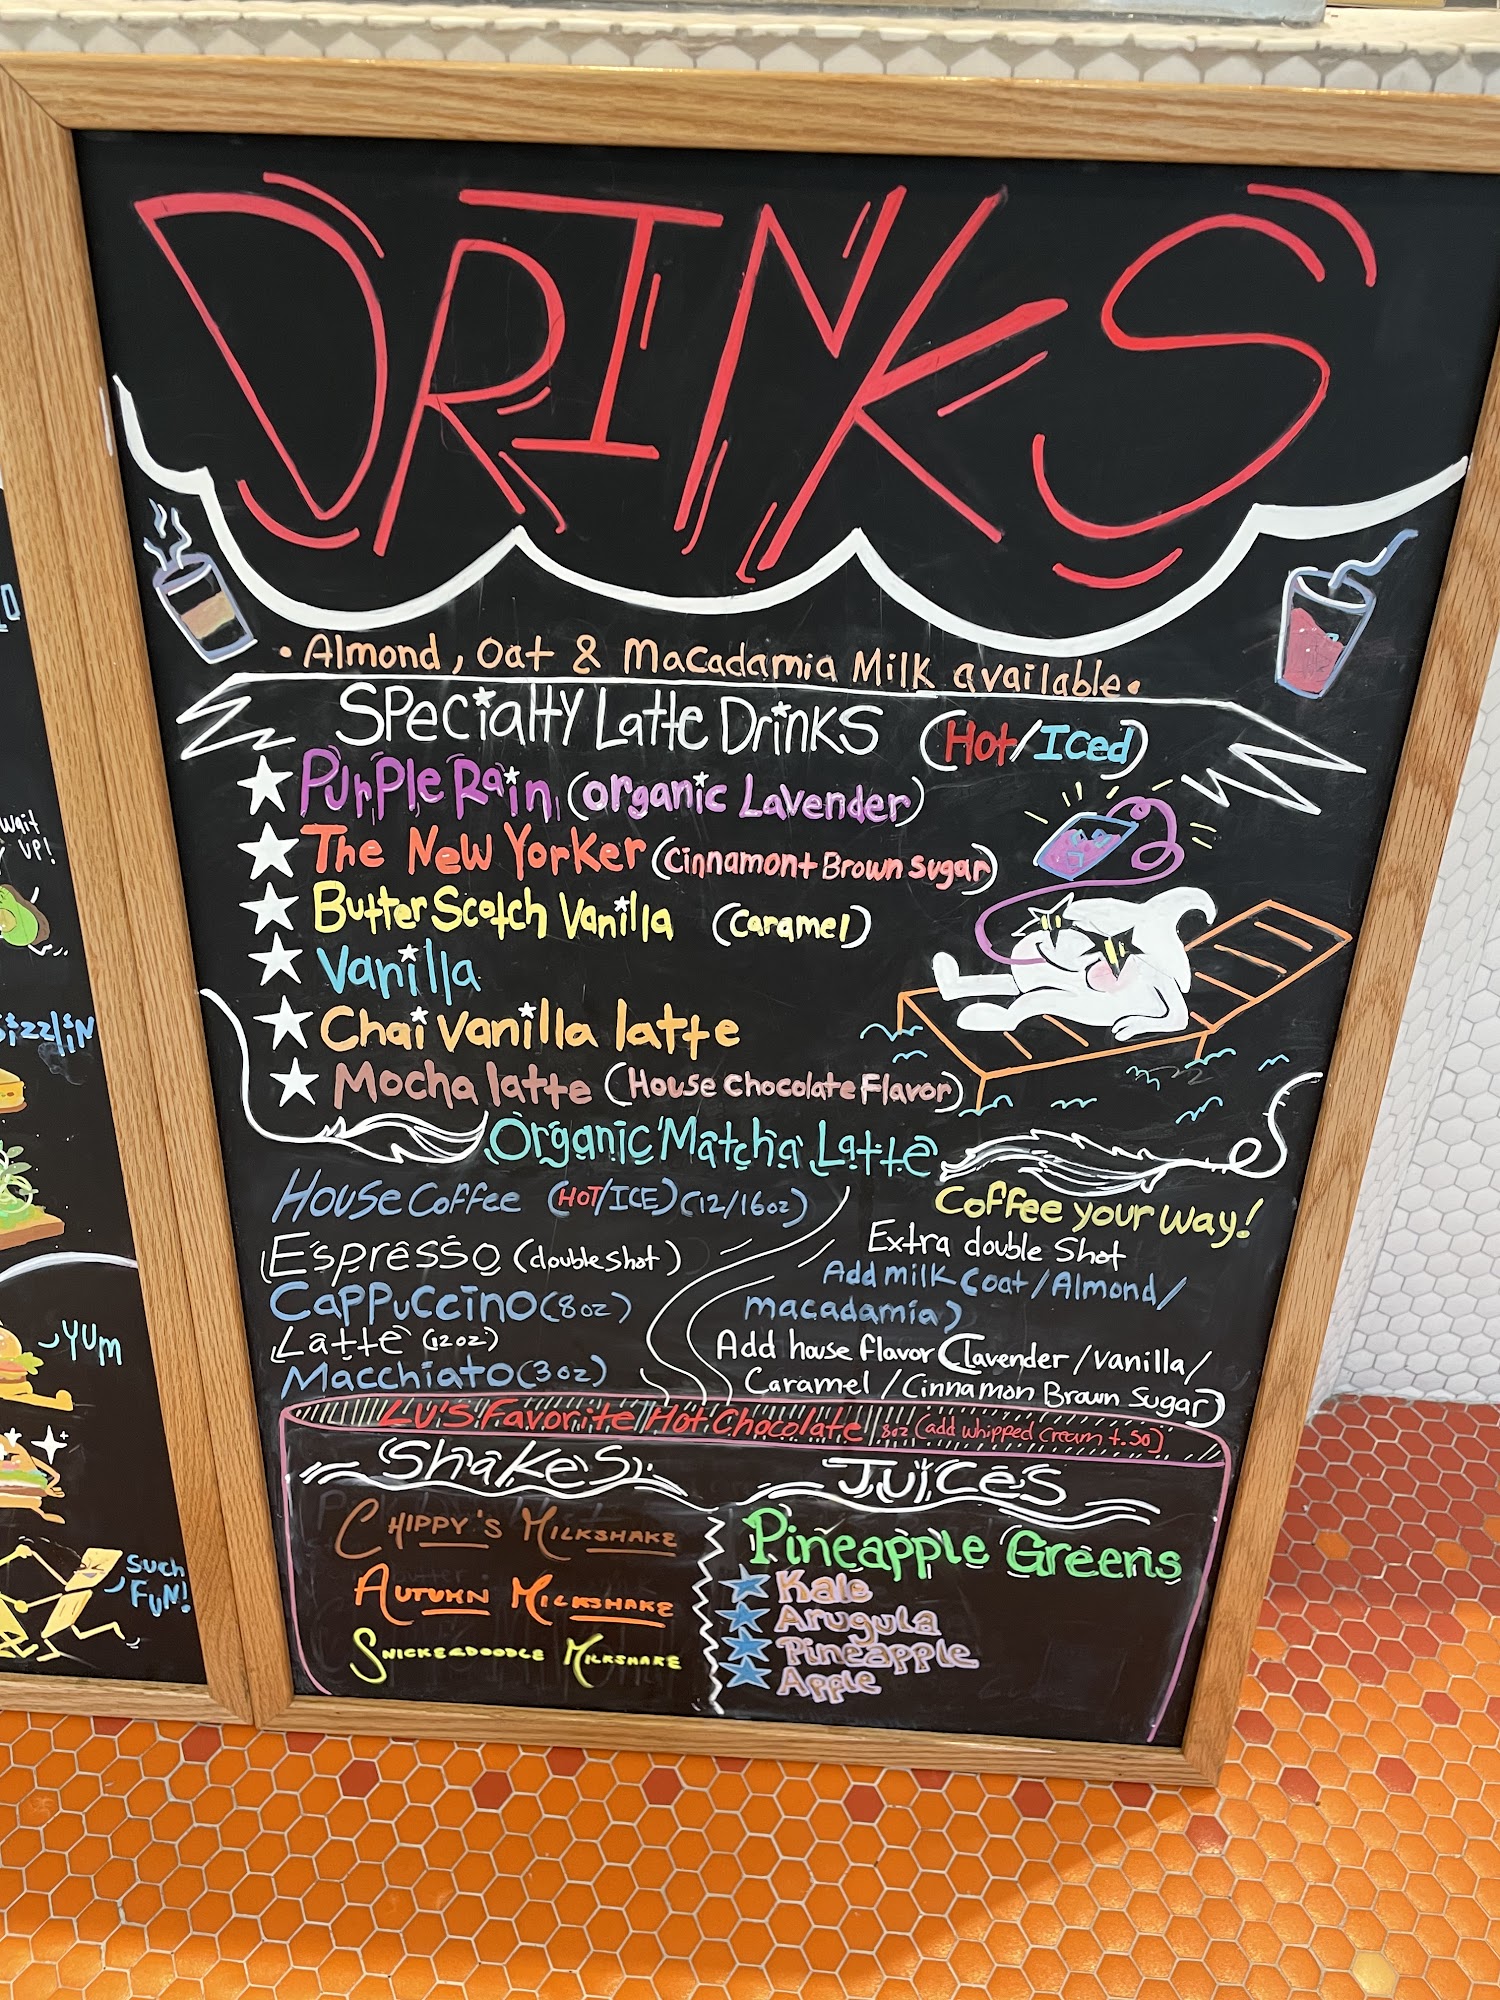 DRINKS
• Almond, Oat & Macadamia Milk available•
Specialty Latte Drinks (Hot/Iced)
Purple Rain (organic Lavender)
The New Yorker (Cinnamon + Brown Sugar)
Butter Scotch Vanilla (Caramel)
Vanilla
Chai Vanilla latte
Mocha latte (House Chocolate Flavor)
Organic Matcha Latte
House Coffee (HOT/ICE) (12/16oz)
Espresso (double shot)
Cappuccino (8oz)
Latte (12oz)
Macchiato (3oz)
Coffee your way!
Extra double Shot
Add milk (oat/Almond/
macadamia)
Add house flavor (lavender/vanilla/
Caramel/Cinnamon Brown Sugar)
LU'S Favorite Hot Chocolate 8oz (add whipped cream +.50)
Shakes
Chippy's Milkshake
Autumn Milkshake
Snickerdoodle Milkshake
JUICES
Pineapple Greens
Kale
Arugula
Pineapple
Apple
wait
UP!
YUM
SUCH
FUN!